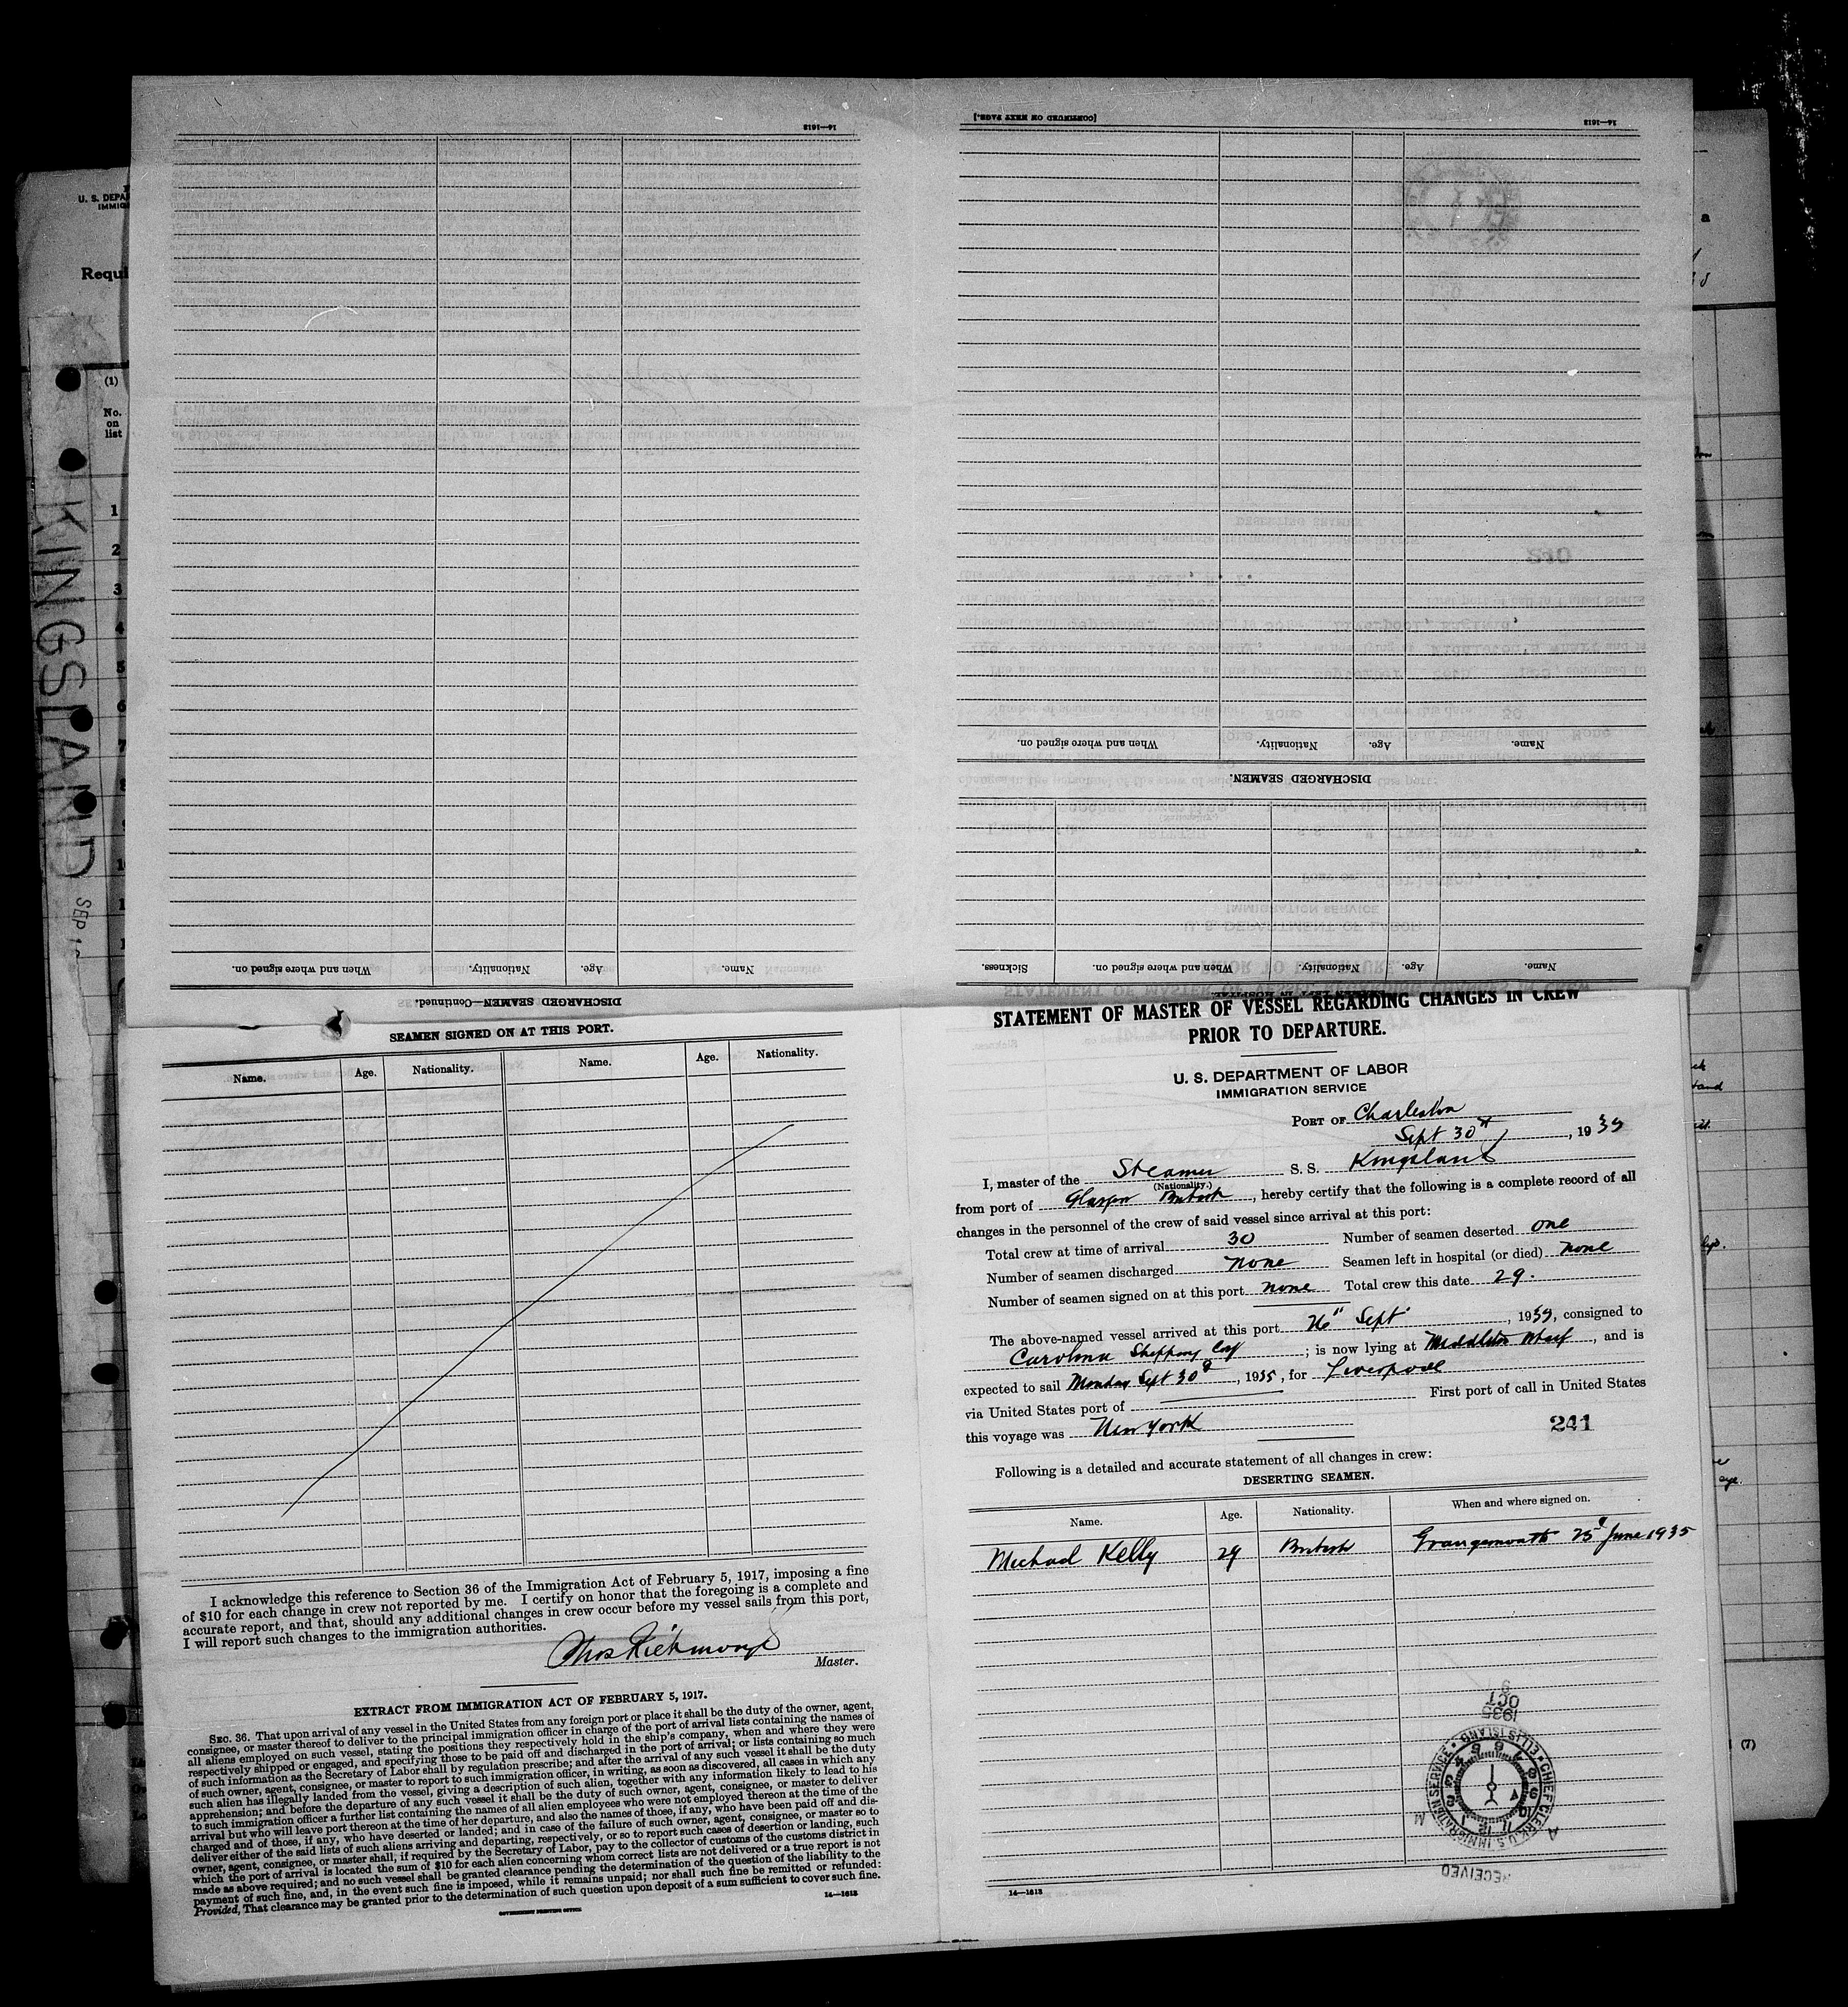 14—1613
[CONTINUED ON NEXT PAGE.]
14—1613
When and where signed on.
Nationality.
Age.
Name.
DISCHARGED SEAMEN—Continued.
When and where signed on.
Nationality.
Age.
Name.
DISCHARGED SEAMEN.
Sickness.
When and where signed on.
Nationality.
Age.
Name.
U. S. DEPA
IMMIG
Requi
(1)
No.
on
list
1
2
3
4
5
6
7
8
KINGSLAND
SEP 1
SEAMEN SIGNED ON AT THIS PORT.
Name. Age. Nationality. Name. Age. Nationality.
I acknowledge this reference to Section 36 of the Immigration Act of February 5, 1917, imposing a fine
of $10 for each change in crew not reported by me. I certify on honor that the foregoing is a complete and
accurate report, and that, should any additional changes in crew occur before my vessel sails from this port,
I will report such changes to the immigration authorities.
Thos Richmond
Master.
EXTRACT FROM IMMIGRATION ACT OF FEBRUARY 5, 1917.
SEC. 36. That upon arrival of any vessel in the United States from any foreign port or place it shall be the duty of the owner, agent,
consignee, or master thereof to deliver to the principal immigration officer in charge of the port of arrival lists containing the names of
all aliens employed on such vessel, stating the positions they respectively hold in the ship's company, when and where they were
respectively shipped or engaged, and specifying those to be paid off and discharged in the port of arrival; or lists containing so much
of such information as the Secretary of Labor shall by regulation prescribe; and after the arrival of any such vessel it shall be the duty
of such owner, agent, consignee, or master to report to such immigration officer, in writing, as soon as discovered, all cases in which any
such alien has illegally landed from the vessel, giving a description of such alien, together with any information likely to lead to his
apprehension; and before the departure of any such vessel it shall be the duty of such owner, agent, consignee, or master to deliver
to such immigration officer a further list containing the names of all alien employees who were not employed thereon at the time of the
arrival but who will leave port thereon at the time of her departure, and also the names of those, if any, who have been paid off and dis-
charged and of those, if any, who have deserted or landed; and in case of the failure of such owner, agent, consignee, or master so to
deliver either of the said lists of such aliens arriving and departing, respectively, or so to report such cases of desertion or landing, such
owner, agent, consignee, or master shall, if required by the Secretary of Labor, pay to the collector of customs of the customs district in
which the port of arrival is located the sum of $10 for each alien concerning whom correct lists are not delivered or a true report is not
made as above required; and no such vessel shall be granted clearance pending the determination of the question of the liability to the
payment of such fine, and, in the event such fine is imposed, while it remains unpaid; nor shall such fine be remitted or refunded:
Provided, That clearance may be granted prior to the determination of such question upon deposit of a sum sufficient to cover such fine.
14—1613
GOVERNMENT PRINTING OFFICE
STATEMENT OF MASTER OF VESSEL REGARDING CHANGES IN CREW
PRIOR TO DEPARTURE.
U. S. DEPARTMENT OF LABOR
IMMIGRATION SERVICE
PORT OF Charleston
Sept 30th, 1935
I, master of the Steamer S. S. Kingsland
(Nationality.)
from port of Glasgow British, hereby certify that the following is a complete record of all
changes in the personnel of the crew of said vessel since arrival at this port:
Total crew at time of arrival 30 Number of seamen deserted one
Number of seamen discharged none Seamen left in hospital (or died) none
Number of seamen signed on at this port none Total crew this date 29.
The above-named vessel arrived at this port 26" Sept, 1935, consigned to
Carolina Shipping Coy; is now lying at Middleton Wharf, and is
expected to sail Monday Sept 30th, 1935, for Liverpool
via United States port of First port of call in United States
this voyage was New York
241
Following is a detailed and accurate statement of all changes in crew:
DESERTING SEAMEN.
Name. Age. Nationality. When and where signed on.
Michael Kelly 29 British Grangemouth 25th June 1935
1935
OCT
9
CHIEF CLERK U. S. IMMIGRATION SERVICE • ELLIS ISLAND
A M
RECEIVED
14—1613
(7)